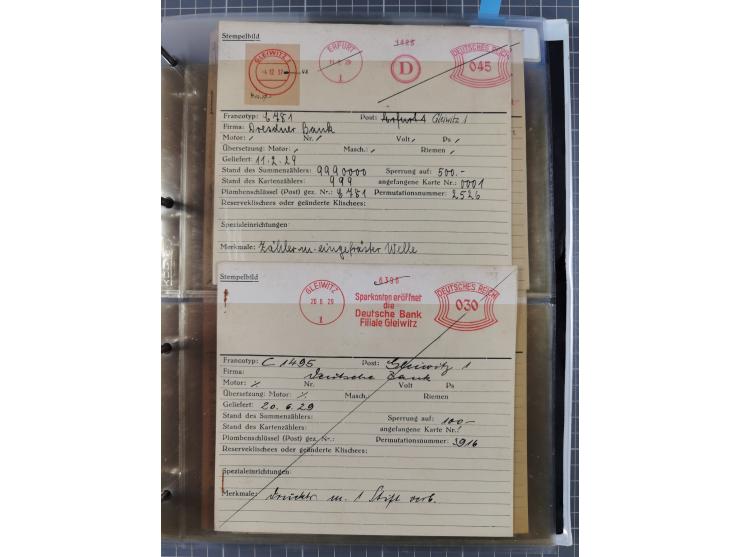 Stempelbild
GLEIWITZ 1
-4.12.37
ERFURT
1
1485
D
DEUTSCHES REICH
045
Francotyp: C 781 Post: Erfurt 1 Gleiwitz 1
Firma: Dresdner Bank
Motor: / Nr. Volt / Ps /
Übersetzung: Motor: / Masch.: / Riemen /
Geliefert: 11.2.29
Stand des Summenzählers: 9990000 Sperrung auf: 500.-
Stand des Kartenzählers: 999 angefangene Karte Nr.: 0001
Plombenschlüssel (Post) gez. Nr.: C 781 Permutationsnummer: 2526
Reserveklischees oder geänderte Klischees:
Spezialeinrichtungen:
Merkmale: Zähler m. eingefräster Welle
Stempelbild
GLEIWITZ
20.6.29
1
6396
Sparkonten eröffnet
die
Deutsche Bank
Filiale Gleiwitz
DEUTSCHES REICH
030
Francotyp: C 1495 Post: Gleiwitz 1
Firma: Deutsche Bank
Motor: Nr. Volt Ps
Übersetzung: Motor: Masch.: Riemen
Geliefert: 20.6.29
Stand des Summenzählers: Sperrung auf: 100.-
Stand des Kartenzählers: angefangene Karte Nr.:
Plombenschlüssel (Post) gez. Nr.: Permutationsnummer: 3916
Reserveklischees oder geänderte Klischees:
Spezialeinrichtungen:
Merkmale: Drucktr m. 1 Stift verb.